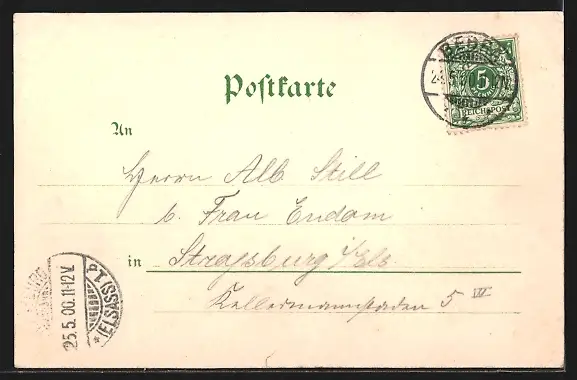 Postkarte
5
REICHSPOST
An
Herrn Alb. Still
b. Frau Endam
in Strassburg i/Els
Kellermannstaden 5 III
25.5.00.11-12V.
P.1 (ELSASS)